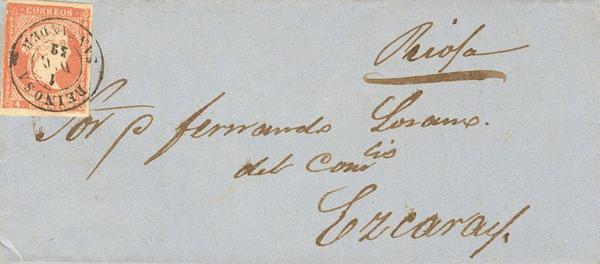 CORREOS
REINOSA
1
59
Rioja
Sor D fernando Lozano.
del Comcio
Ezcaray.